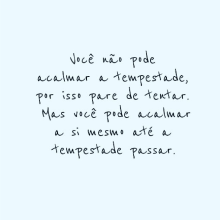 Você não pode
acalmar a tempestade,
por isso pare de tentar.
Mas você pode acalmar
a si mesmo até a
tempestade passar.